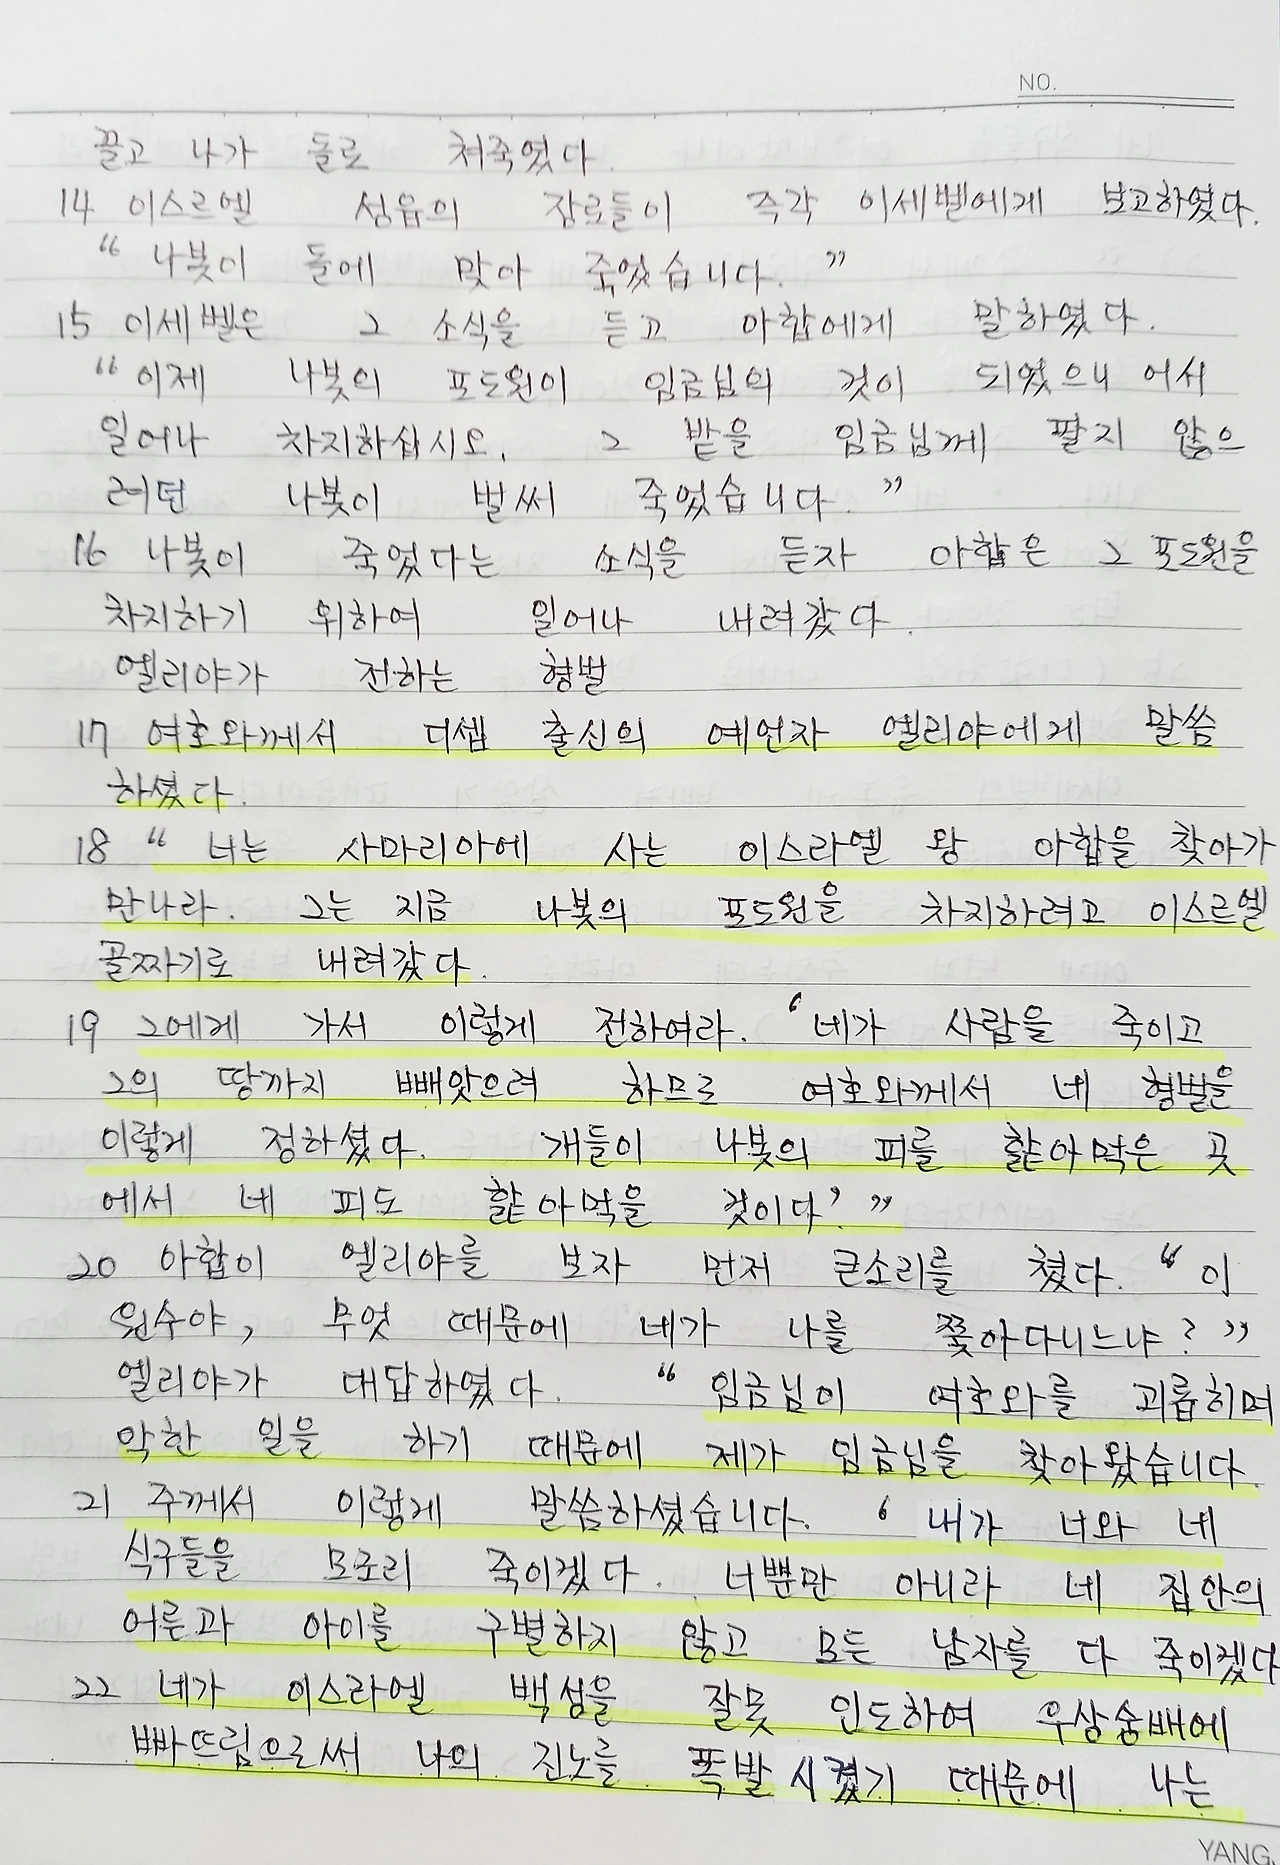 NO.
끌고 나가 돌로 쳐죽였다.
14 이스르엘 성읍의 장로들이 즉각 이세벨에게 보고하였다.
“ 나봇이 돌에 맞아 죽었습니다. ”
15 이세벨은 그 소식을 듣고 아합에게 말하였다.
“ 이제 나봇의 포도원이 임금님의 것이 되었으니 어서
일어나 차지하십시오. 그 밭을 임금님께 팔지 않으
려던 나봇이 벌써 죽었습니다. ”
16 나봇이 죽었다는 소식을 듣자 아합은 그 포도원을
차지하기 위하여 일어나 내려갔다.
엘리야가 전하는 형벌
17 여호와께서 디셉 출신의 예언자 엘리야에게 말씀
하셨다.
18 “ 너는 사마리아에 사는 이스라엘 왕 아합을 찾아가
만나라. 그는 지금 나봇의 포도원을 차지하려고 이스르엘
골짜기로 내려갔다.
19 그에게 가서 이렇게 전하여라. ‘ 네가 사람을 죽이고
그의 땅까지 빼앗으려 하므로 여호와께서 네 형벌을
이렇게 정하셨다. 개들이 나봇의 피를 핥아 먹은 곳
에서 네 피도 핥아먹을 것이다’. ”
20 아합이 엘리야를 보자 먼저 큰소리를 쳤다. “ 이
원수야, 무엇 때문에 네가 나를 쫓아다니느냐? ”
엘리야가 대답하였다. “ 임금님이 여호와를 괴롭히며
악한 일을 하기 때문에 제가 임금님을 찾아왔습니다.
21 주께서 이렇게 말씀하셨습니다. ‘ 내가 너와 네
식구들을 모조리 죽이겠다. 너뿐만 아니라 네 집안의
어른과 아이를 구별하지 않고 모든 남자를 다 죽이겠다
22 네가 이스라엘 백성을 잘못 인도하여 우상숭배에
빠뜨림으로써 나의 진노를 폭발시켰기 때문에 나는
YANG.